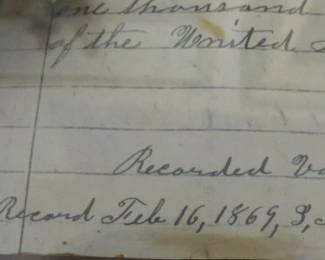 one thousand
of the United
Recorded Vo
Record Feb 16, 1869, 3,